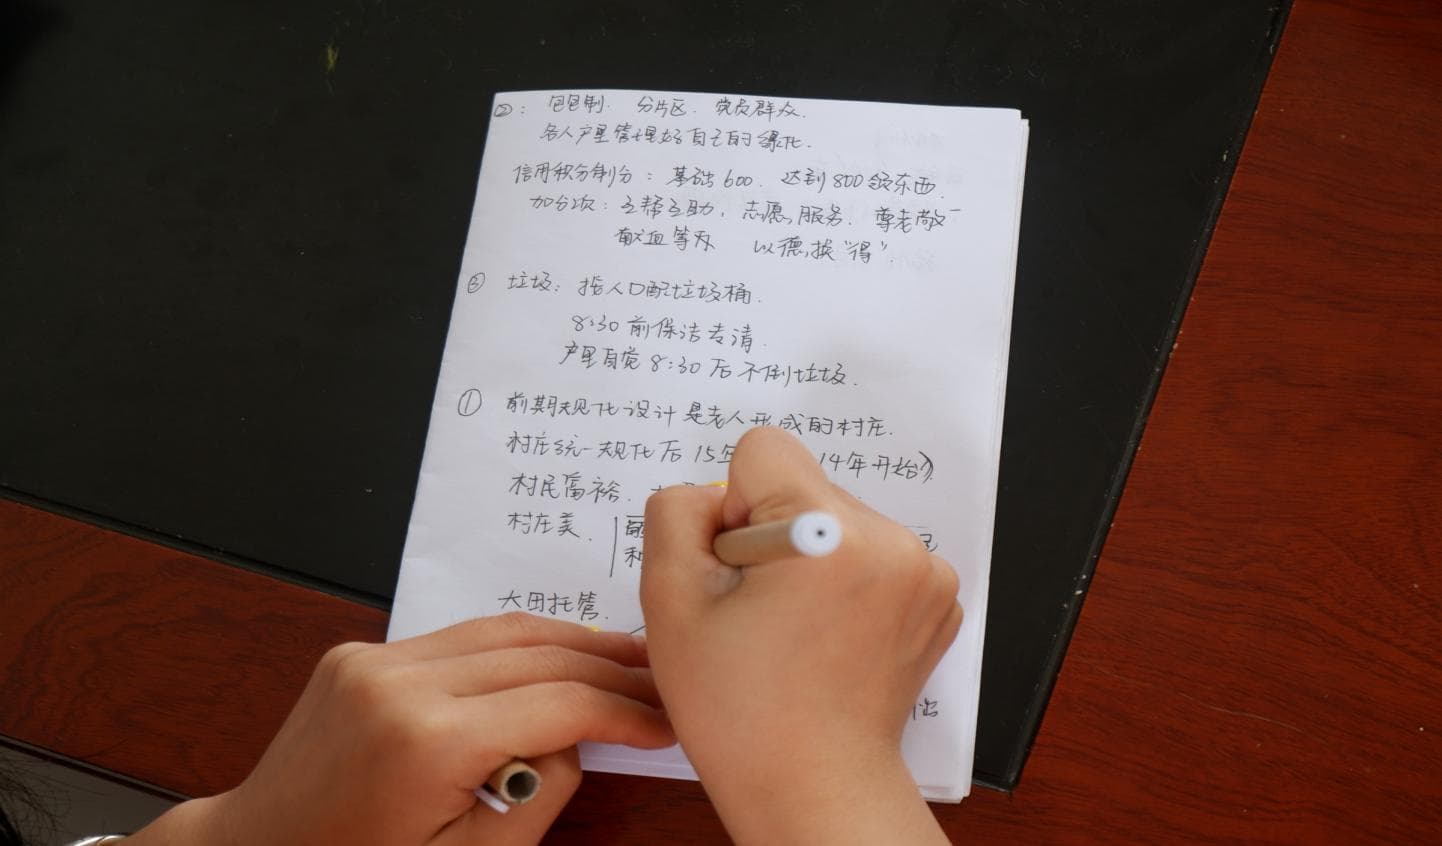 ②: 包包制. 分片区. 党员群众.
各人户里管理好自己的绿化.
信用积分制分: 基础600. 达到800领东西.
加分项: 互帮互助, 志愿服务. 尊老敬
献血等方 以德换“得”.
③ 垃圾: 按人口配垃圾桶.
8:30前保洁去清.
户里自觉8:30后不倒垃圾.
① 前期规化设计是老人形成的村庄.
村庄统一规化后15年 14年开始》
村民富裕.
村庄美.
和
大田托管.